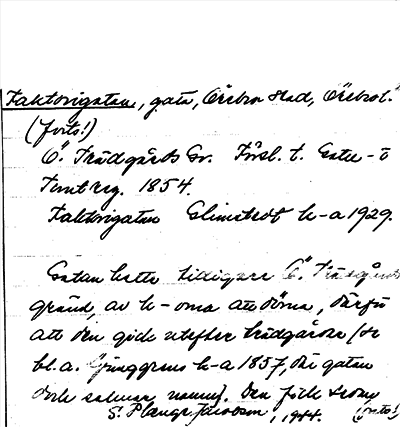 Faktorigatan, gata, Örebro stad, Örebro l.
(forts!)
Ö. Trädgårds Gr. Försl. t. Gatu- o
Tomtreg. 1854.
Faktorigatan Elmstedt k-a 1929.
Gatan hette tidigare Ö. Trädgårds
gränd, av k-orna att döma, därför
att den gick utefter trädgårdar (se
bl.a. Ljunggrens k-a 1857, där gatan
dock saknar namn). Den fick
S. Plaenge Jacobson, 1944. (forts!)